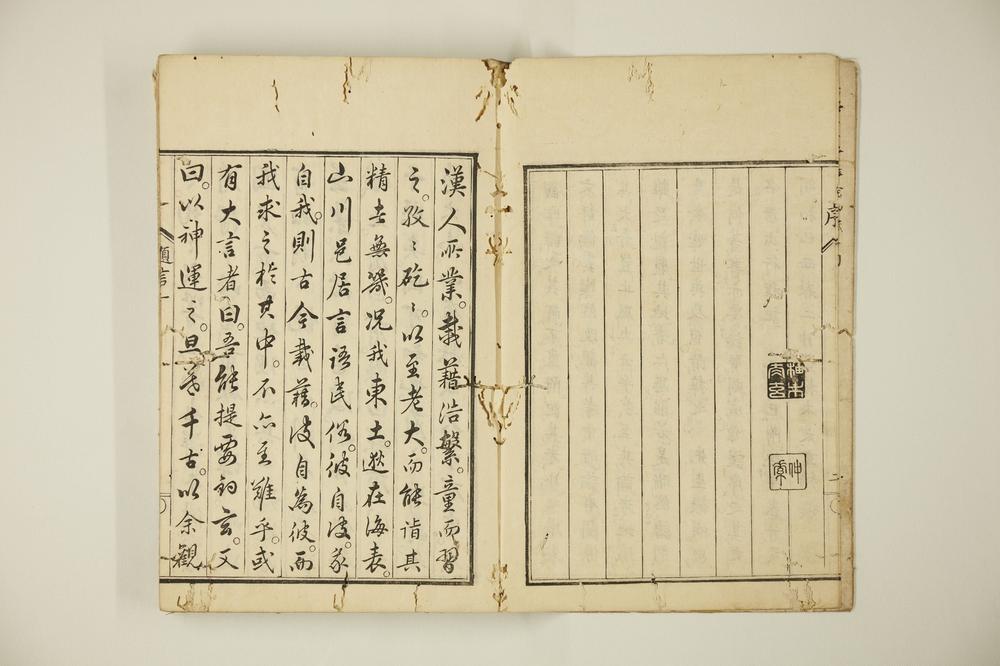 序
漢人所業。載藉浩繁。童而習
之。孜〻矻〻。以至老大。而能詣其
精者無幾。況我東土。逖在海表。
山川邑居言語民俗。彼自彼。我
自我。則古今載藉。彼自為彼。而
我求之於其中。不亦至難乎。或
有大言者曰。吾能提要鉤玄。又
曰。以神運之。旦暮千古。以余觀